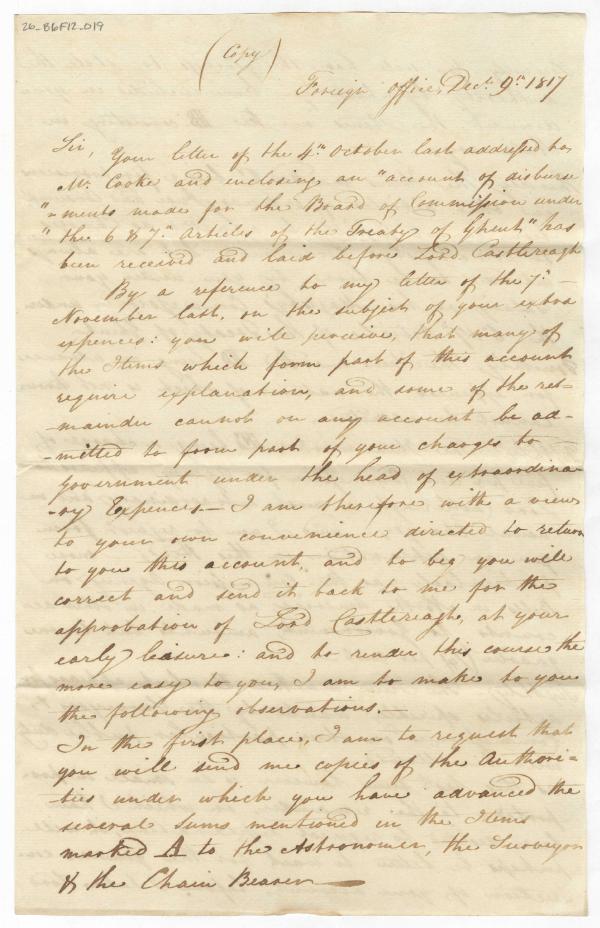 26_B6F12_019
(Copy)
Foreign Office, Decr. 9th 1817
Sir,
Your letter of the 4th October last addressed to
Mr. Cooke and enclosing an "account of disburse
"-ments made for the Board of Commission under
"the 6 & 7th Articles of the Treaty of Ghent" has
been received and laid before Lord Castlereagh
By a reference to my letter of the 7th
November last, on the subject of your extra
expences: you will perceive, that many of
the Items which form part of this account
require explanation, and some of the re-
-mainder cannot on any account be ad-
-mitted to form part of your charges to
Government under the head of extraordina-
-ry Expences— I am therefore with a view
to your own convenience directed to return
to you this account, and to beg you will
correct and send it back to me for the
approbation of Lord Castlereagh, at your
early leisure: and to render this course the
more easy to you, I am to make to you
the following observations.—
In the first place, I am to request that
you will send me copies of the Authori-
-ties under which you have advanced the
several Sums mentioned in the Items
marked A to the Astronomer, the Surveyor
& the Chain Bearer—